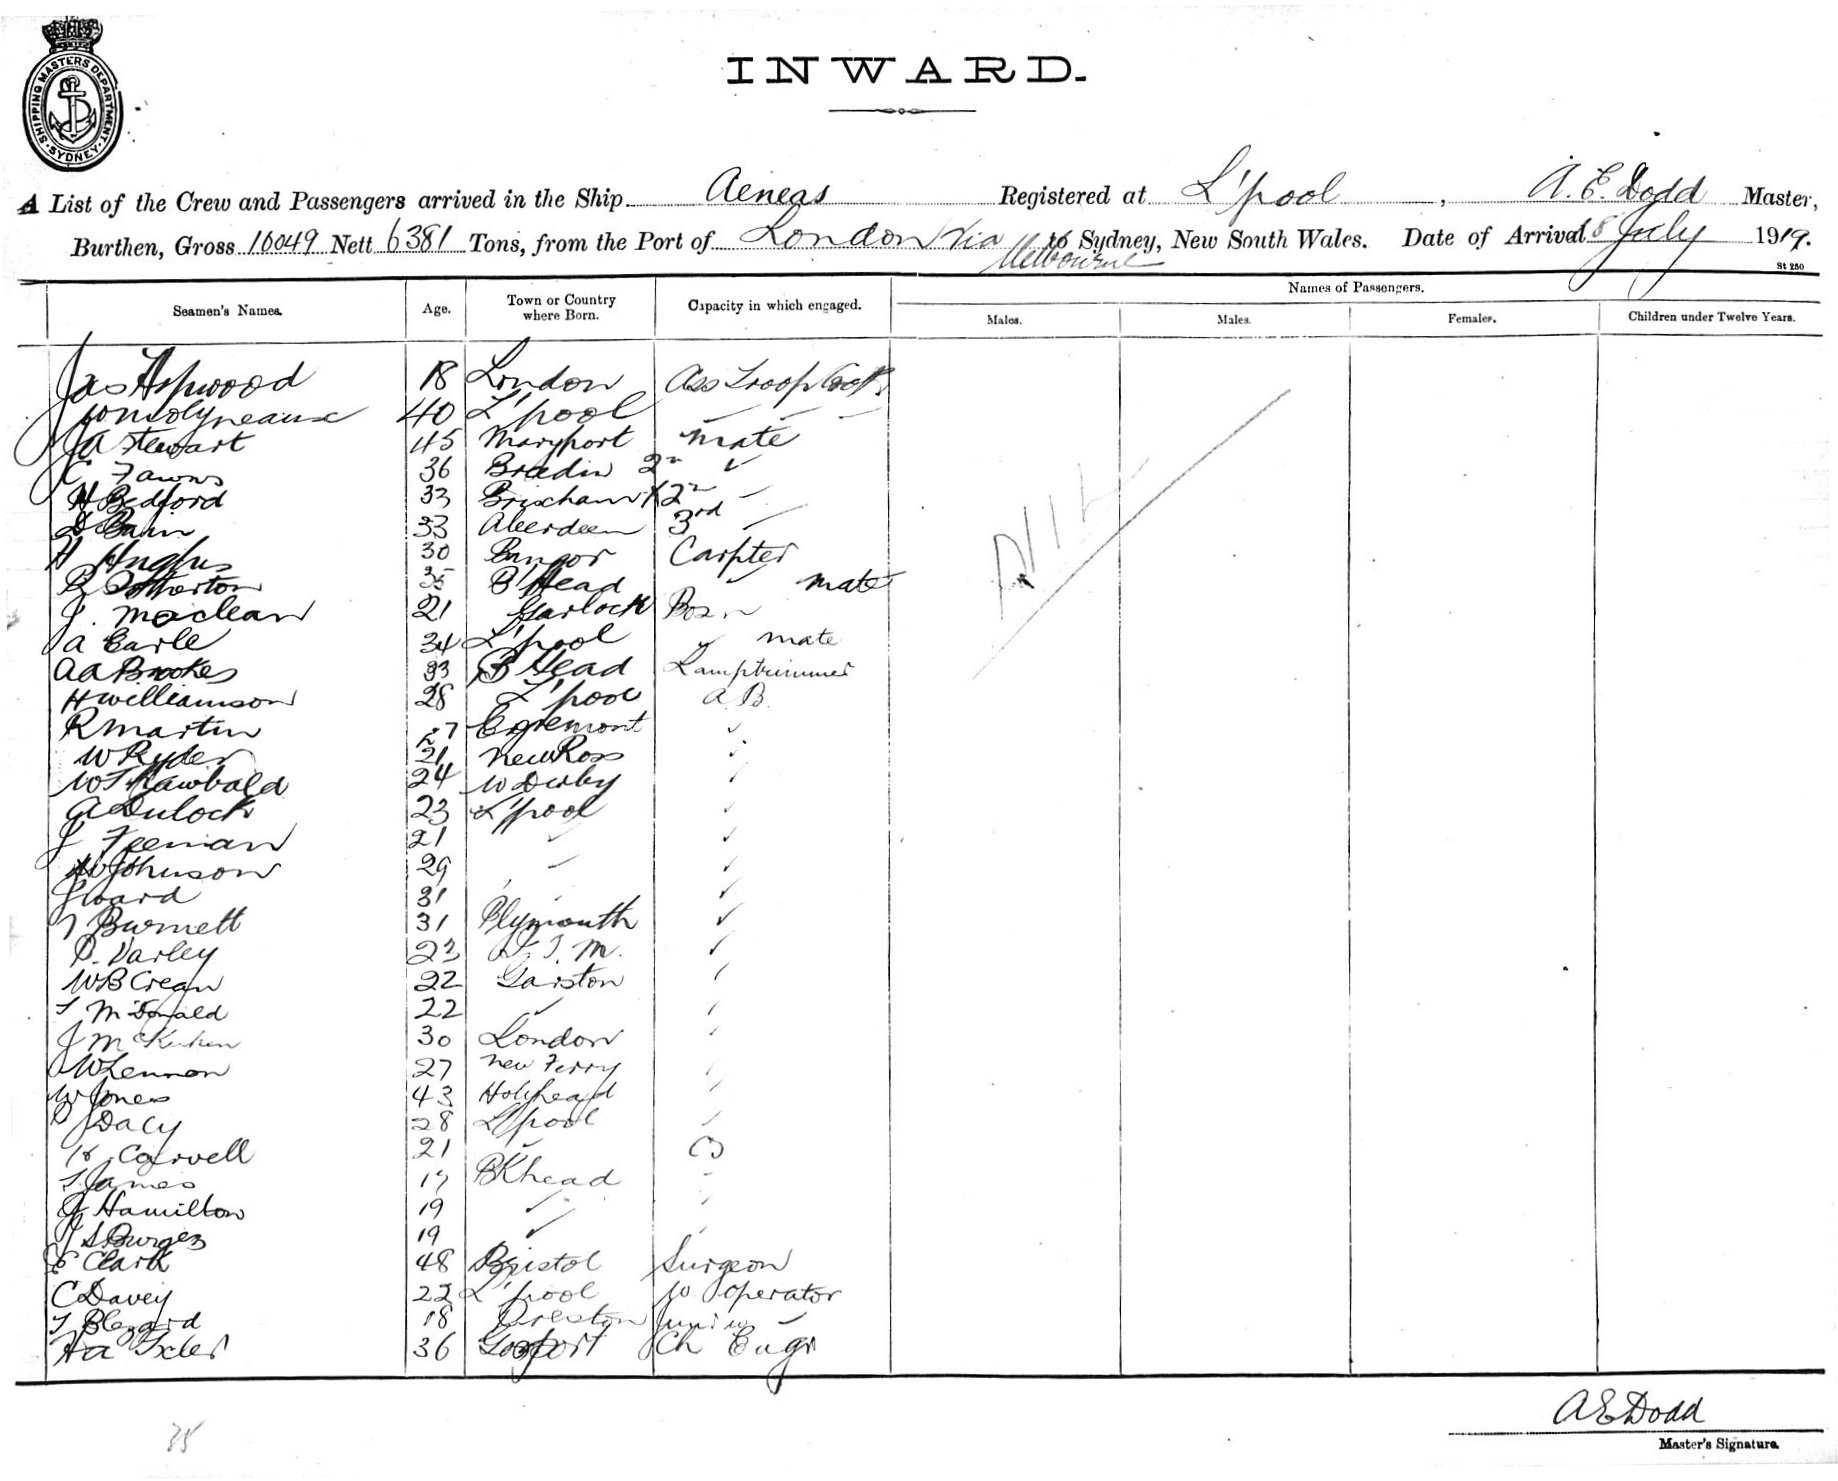 SHIPPING MASTERS DEPARTMENT · SYDNEY ·
INWARD.
A List of the Crew and Passengers arrived in the Ship Aeneas Registered at L'pool, A. E. Dodd Master,
Burthen, Gross 10049 Nett 6381 Tons, from the Port of London via Melbourne to Sydney, New South Wales. Date of Arrival 8 July 1919.
St 250
Seamen's Names. Age. Town or Country where Born. Capacity in which engaged. Names of Passengers.
Males. Males. Females. Children under Twelve Years.
Jas Aspwood 18 London Ass Troop Cook
Molyneaux 40 L'pool
JA Stewart 45 Maryport mate
C Fawns 36 2n ✓
H Bedford 33 Brixham x 2n
33 Aberdeen 3rd
H Hughes 30 Bangor Carpter
35 B'Head ✓ mate
J. Maclean 21 Garloch Bosn
A Earle 34 L'pool ✓ mate
AA Brookes 33 B'Head Lamptrimmer
H Williamson 28 L'pool A.B.
R Martin 27 Egremont ✓
W Ryder 21 New Ross ✓
24 W Derby ✓
A Dulock 23 L'pool ✓
J Feenan 21 ✓ ✓
W Johnson 29 ✓
J Ward 31 ✓
Burnett 31 Plymouth ✓
Varley 23 ✓
WB Crean 22 Garston ✓
T McDonald 22 ✓ ✓
J 30 London ✓
W Lennon 27 New Ferry
W Jones 43 Holyhead
J Dacy 28 L'pool ✓
Carvell 21 ✓
T James BKhead
J Hamilton 19 ✓
S Burges 19 ✓
E Clark 48 Bristol Surgeon
C Davey 22 L'pool W operator
T Blezard 18 Preston Junior
36 Gosport Ch Engr
NIL
A E Dodd
Master's Signature.
35